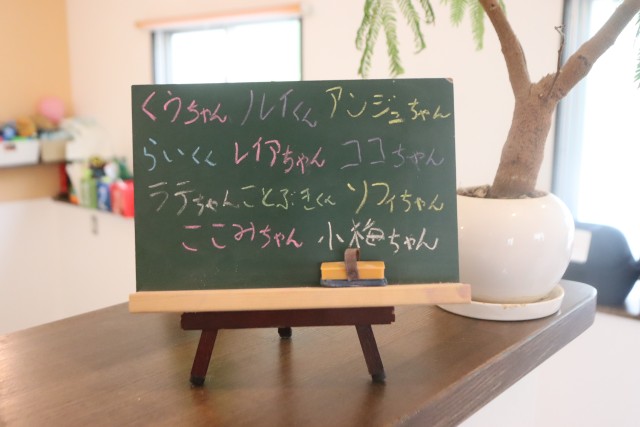 くうちゃん ルイくん アンジュちゃん
らいくん レイアちゃん ココちゃん
ラテちゃん ことぶきくん ソフィちゃん
ここみちゃん 小梅ちゃん